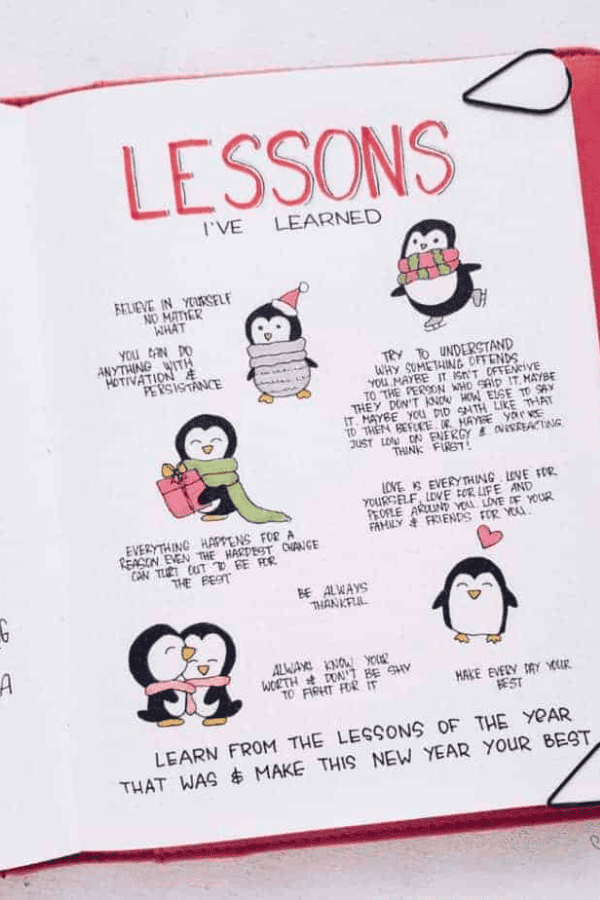 LESSONS
I'VE LEARNED
BELIEVE IN YOURSELF
NO MATTER
WHAT
YOU CAN DO
ANYTHING WITH
MOTIVATION &
PERSISTANCE
TRY TO UNDERSTAND
WHY SOMETHING OFFENDS
YOU. MAYBE IT ISN'T OFFENCIVE
TO THE PERSON WHO SAID IT. MAYBE
THEY DON'T KNOW HOW ELSE TO SAY
IT. MAYBE YOU DID SMTH LIKE THAT
TO THEM BEFORE. OR MAYBE YOU'RE
JUST LOW ON ENERGY & OVERREACTING.
THINK FIRST!
LOVE IS EVERYTHING. LOVE FOR
YOURSELF, LOVE FOR LIFE AND
PEOPLE AROUND YOU. LOVE OF YOUR
FAMILY & FRIENDS FOR YOU.
EVERYTHING HAPPENS FOR A
REASON. EVEN THE HARDEST CHANGE
CAN TURT OUT TO BE FOR
THE BEST
BE ALWAYS
THANKFUL
ALWAYS KNOW YOUR
WORTH & DON'T BE SHY
TO FIGHT FOR IT
MAKE EVERY DAY YOUR
BEST
LEARN FROM THE LESSONS OF THE YEAR
THAT WAS & MAKE THIS NEW YEAR YOUR BEST
G
A